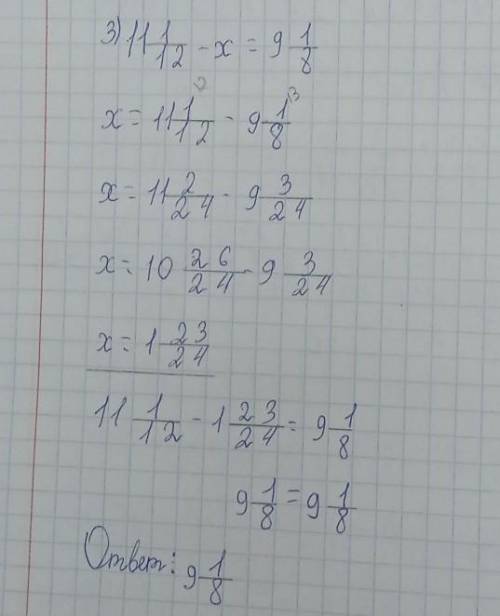 3) 11 1/12 - x = 9 1/8
x = 11 1/12 - 9 1/8 3
x = 11 2/24 - 9 3/24
x = 10 26/24 - 9 3/24
x = 1 23/24
11 1/12 - 1 23/24 = 9 1/8
9 1/8 = 9 1/8
Ответ: 9 1/8